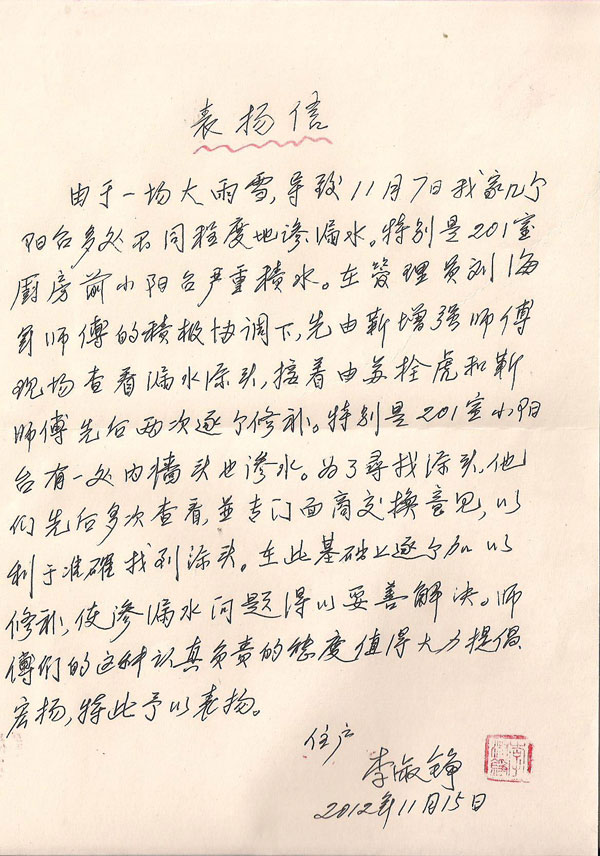 表扬信
由于一场大雨雪，导致11月7日我家几个
阳台多处不同程度地渗漏水。特别是201室
厨房前小阳台严重積水。在管理员刘海
师傅的積极协调下，先由靳增强师傅
现场查看漏水源头，接着由苏拴虎和靳
师傅先后两次逐个修补。特别是201室小阳
台有一处内墙头也渗水。为了尋找源头，他
们先后多次查看，並专门面商交换意见，以
利于准確找到源头。在此基础上逐个加以
修补，使渗漏水问题得以妥善解决。师
傅们的这种认真负责的态度值得大力提倡
宏扬，特此予以表扬。
住户
李淑铮
2012年11月15日